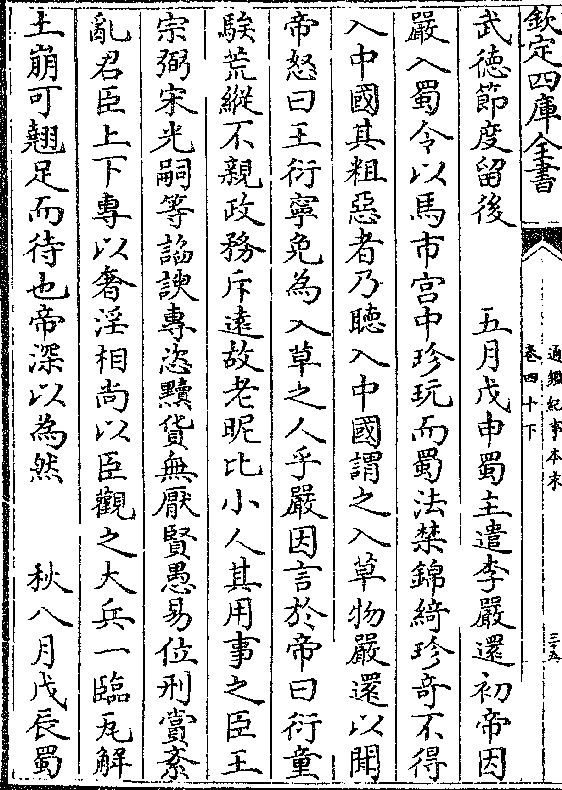 欽定四庫全書
通鑑紀事本末
卷四十下
三十五
武徳節度留後　　五月戊申蜀主遣李嚴還初帝因
嚴入蜀令以馬市宫中珍玩而蜀法禁錦綺珍竒不得
入中國其粗惡者乃聽入中國謂之入草物嚴還以聞
帝怒曰王衍寧免為入草之人乎嚴因言於帝曰衍童
騃荒縱不親政務斥遠故老昵比小人其用事之臣王
宗弼宋光嗣等諂諛專恣黷貨無厭賢愚易位刑賞紊
亂君臣上下專以奢淫相尚以臣觀之大兵一臨瓦解
土崩可翹足而待也帝深以為然　　秋八月戊辰蜀